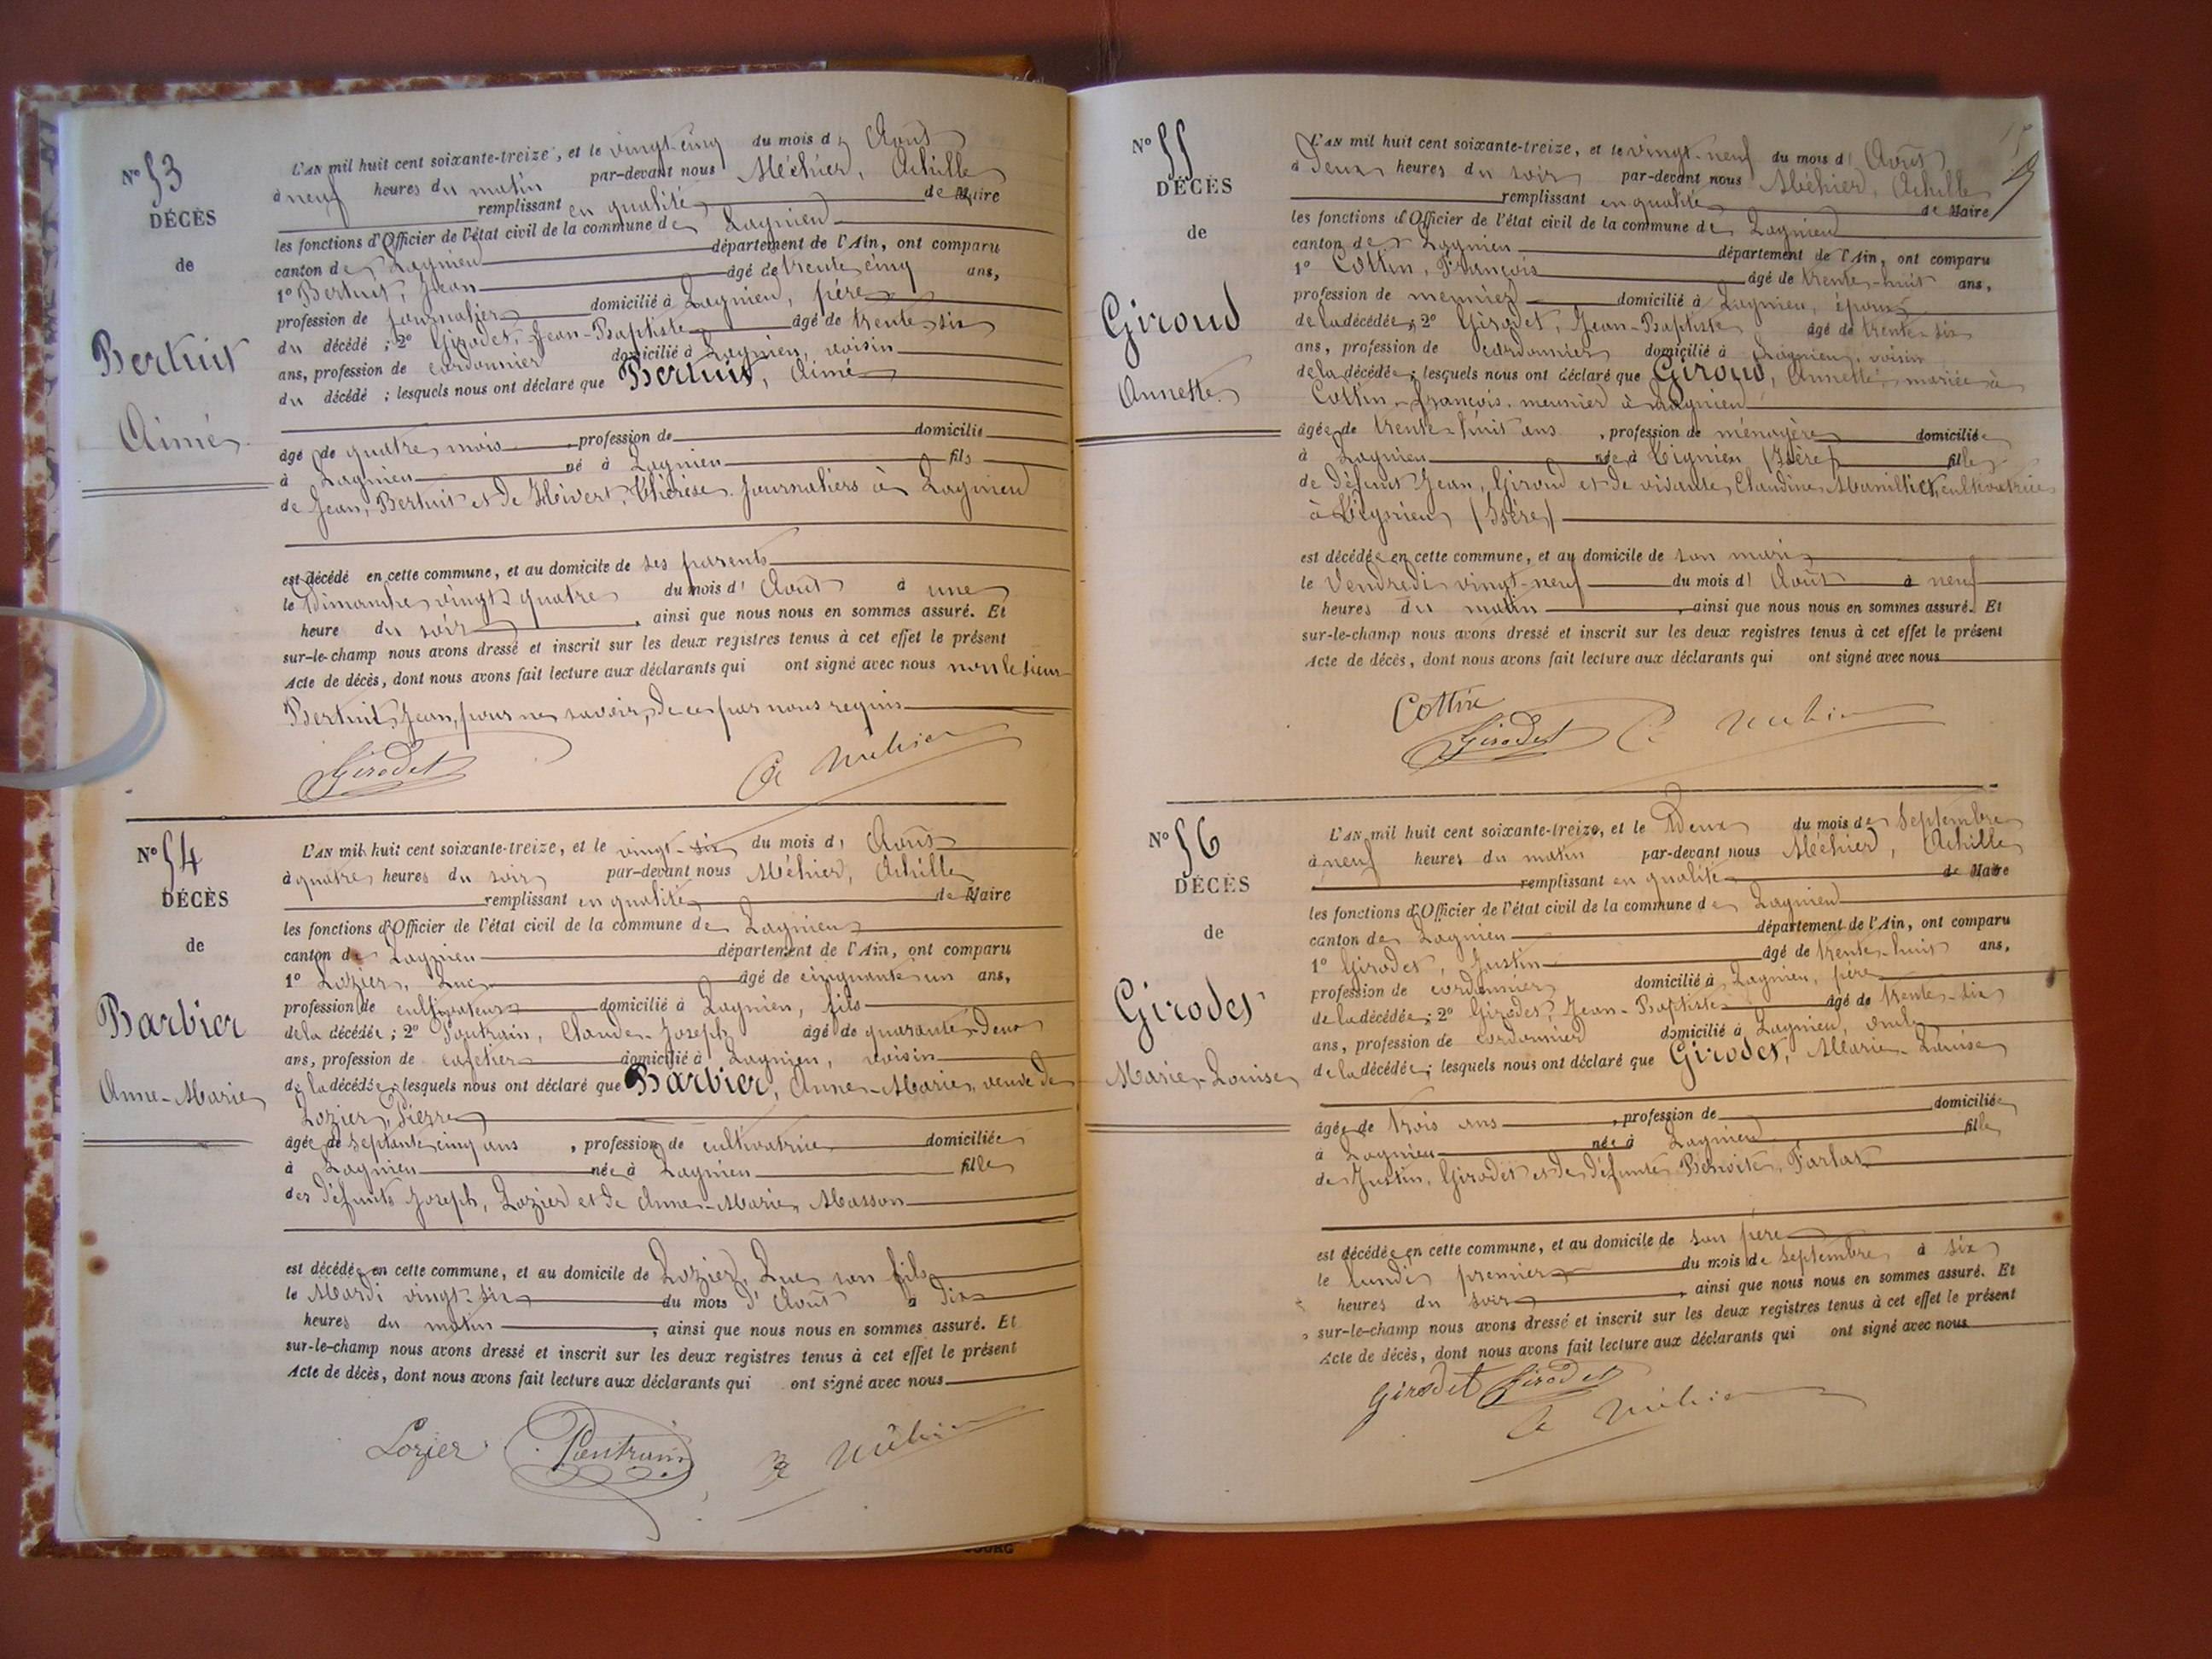 N° 53
DÉCÈS
de
Bertuit
Aimé
L'AN mil huit cent soixante-treize, et le vingt-cinq du mois d' Août
à neuf heures du matin par-devant nous Méhier, Achille
remplissant en qualité de Maire
les fonctions d'Officier de l'état civil de la commune de Lagnieu
canton de Lagnieu département de l'Ain, ont comparu
1° Bertuit, Jean âgé de trente cinq ans,
profession de journalier domicilié à Lagnieu, père
du décédé ; 2° Girodet, Jean-Baptiste âgé de trente six
ans, profession de cordonnier domicilié à Lagnieu, voisin
du décédé ; lesquels nous ont déclaré que Bertuit, Aimé
âgé de quatre mois , profession de domicilié
à Lagnieu né à Lagnieu fils
de Jean, Bertuit et de Hivert, Thérèse journaliers à Lagnieu
est décédé en cette commune, et au domicile de ses parents
le Dimanche vingt quatre du mois d' Août à une
heure du soir , ainsi que nous nous en sommes assuré. Et
sur-le-champ nous avons dressé et inscrit sur les deux registres tenus à cet effet le présent
Acte de décès, dont nous avons fait lecture aux déclarants qui ont signé avec nous non le sieur
Bertuit, Jean, pour ne savoir, de ce par nous requis
Girodet
A Méhier
N° 54
DÉCÈS
de
Barbier
Anne-Marie
L'AN mil huit cent soixante-treize, et le vingt-six du mois d' Août
à quatre heures du soir par-devant nous Méhier, Achille
remplissant en qualité de Maire
les fonctions d'Officier de l'état civil de la commune de Lagnieu
canton de Lagnieu département de l'Ain, ont comparu
1° Lozier, Luc âgé de cinquante un ans,
profession de cultivateur domicilié à Lagnieu, fils
de la décédée ; 2° Poutrain, Claude-Joseph âgé de quarante-deux
ans, profession de cafetier domicilié à Lagnieu, voisin
de la décédée ; lesquels nous ont déclaré que Barbier, Anne-Marie, veuve de
Lozier, Pierre
âgée de septante cinq ans , profession de cultivatrice domiciliée
à Lagnieu née à Lagnieu fille
des défunts Joseph, Lozier et de Anne-Marie, Masson
est décédée en cette commune, et au domicile de Lozier, Luc son fils
le Mardi vingt-six du mois d' Août à dix
heures du matin , ainsi que nous nous en sommes assuré. Et
sur-le-champ nous avons dressé et inscrit sur les deux registres tenus à cet effet le présent
Acte de décès, dont nous avons fait lecture aux déclarants qui ont signé avec nous
Lozier Poutrain Méhier
N° 55
DÉCÈS
de
Giroud
Annette
L'AN mil huit cent soixante-treize, et le vingt-neuf du mois d' Août
à Deux heures du soir par-devant nous Méhier, Achille
remplissant en qualité de Maire
les fonctions d'Officier de l'état civil de la commune de Lagnieu
canton de Lagnieu département de l'Ain, ont comparu
1° Cottin, François âgé de trente-huit ans,
profession de meunier domicilié à Lagnieu, époux
de la décédée ; 2° Girodet, Jean-Baptiste âgé de trente-six
ans, profession de cordonnier domicilié à Lagnieu, voisin
de la décédée ; lesquels nous ont déclaré que Giroud, Annette, mariée à
Cottin François meunier à Lagnieu
âgée de trente-huit ans , profession de ménagère domiciliée
à Lagnieu née à (Isère) fille
de Défunt Jean, Giroud et de vivante, Claudine cultivatrice
à (Isère)
est décédée en cette commune, et au domicile de son mari
le Vendredi vingt-neuf du mois d' Août à neuf
heures du matin , ainsi que nous nous en sommes assuré. Et
sur-le-champ nous avons dressé et inscrit sur les deux registres tenus à cet effet le présent
Acte de décès, dont nous avons fait lecture aux déclarants qui ont signé avec nous
Cottin
Girodet Méhier
N° 56
DÉCÈS
de
Girodet
Marie-Louise
L'AN mil huit cent soixante-treize, et le Deux du mois de Septembre
à neuf heures du matin par-devant nous Méhier, Achille
remplissant en qualité de Maire
les fonctions d'Officier de l'état civil de la commune de Lagnieu
canton de Lagnieu département de l'Ain, ont comparu
1° Girodet, Justin âgé de trente-huit ans,
profession de cordonnier domicilié à Lagnieu, père
de la décédée ; 2° Girodet, Jean-Baptiste âgé de trente-six
ans, profession de cordonnier domicilié à Lagnieu, oncle
de la décédée ; lesquels nous ont déclaré que Girodet, Marie-Louise
âgée de trois ans , profession de domiciliée
à Lagnieu née à Lagnieu fille
de Justin, Girodet et de défunte, Benoite, Farlat
est décédée en cette commune, et au domicile de son père
le lundi premier du mois de Septembre à six
heures du soir , ainsi que nous nous en sommes assuré. Et
sur-le-champ nous avons dressé et inscrit sur les deux registres tenus à cet effet le présent
Acte de décès, dont nous avons fait lecture aux déclarants qui ont signé avec nous
Girodet Girodet
A Méhier